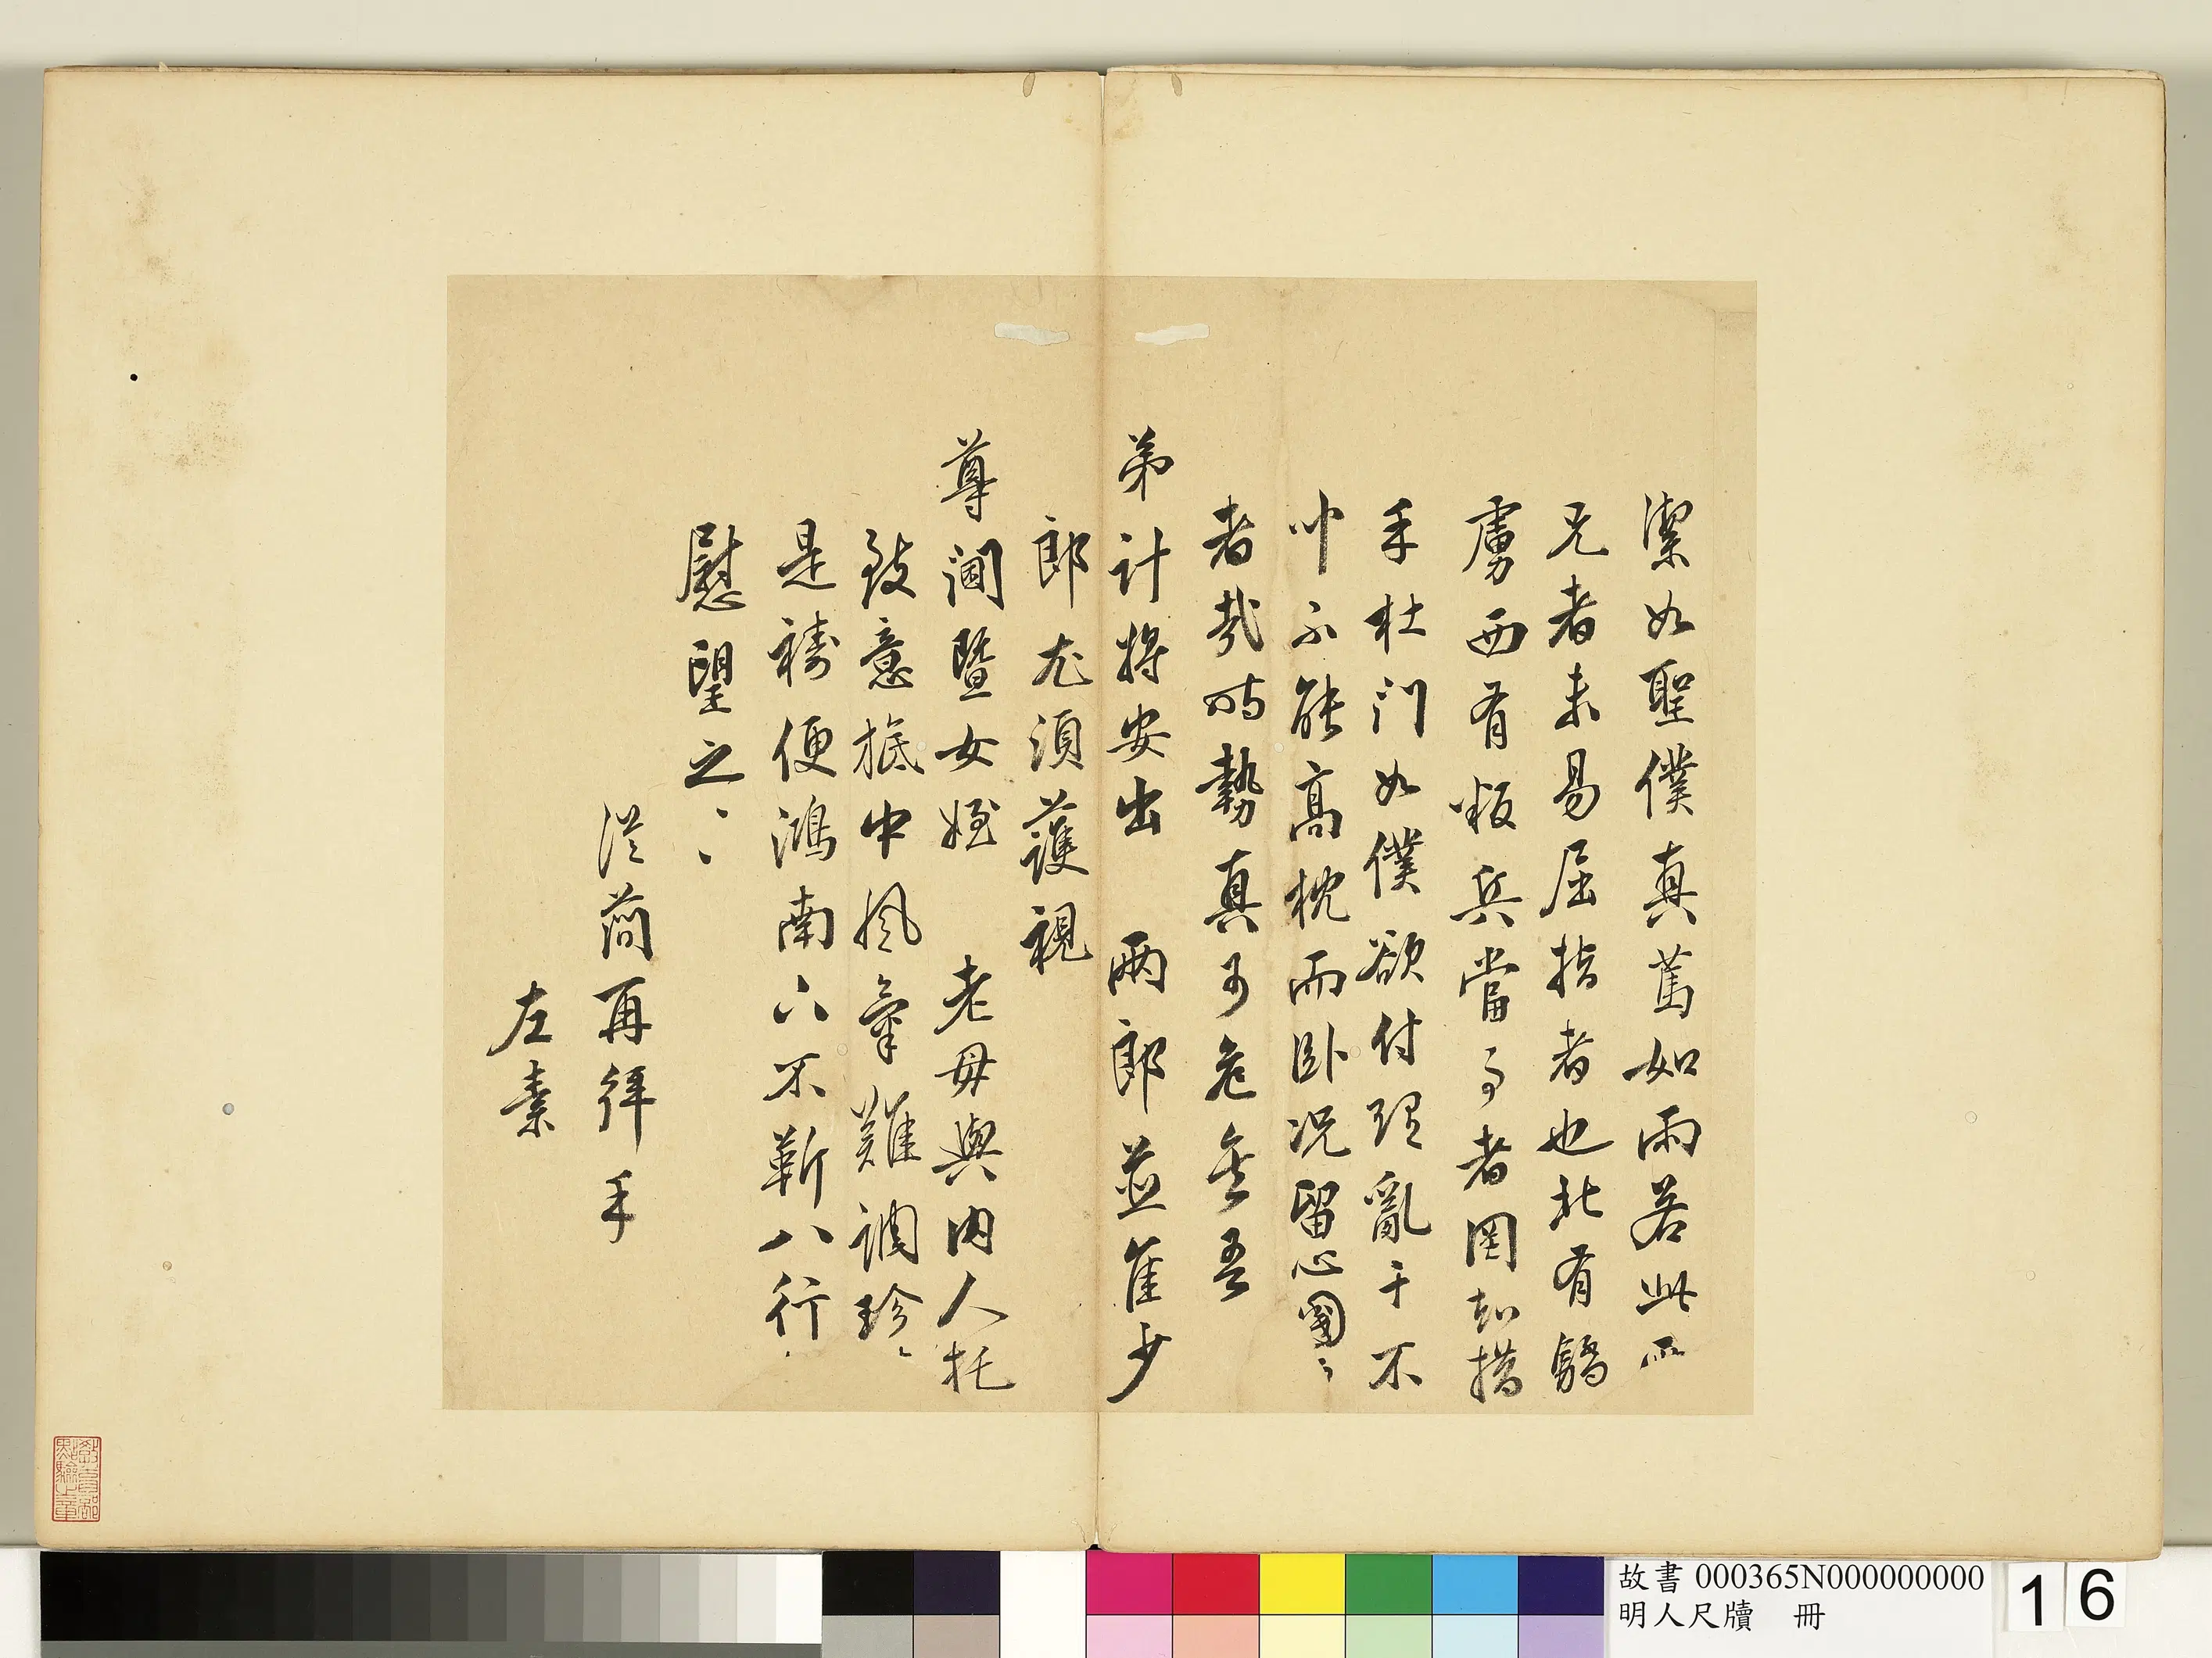 潔如聖僕真舊如雨若此而
兄者未易屈指者也北有驕
虜西有叛兵當事者罔知措
手杜門如僕欲付理亂于不
叫不能高枕而臥況留心國〻
者哉時勢真可危無吾
弟計將安出 兩郎並隹少
郎尤須護視
尊閫暨女姪 老母與內人托
致意旅中風氣難調珍〻
是禱便鴻南六不靳八行
慰望之〻
從簡再拜手
左素
故書 000365N000000000
明人尺牘 冊
16